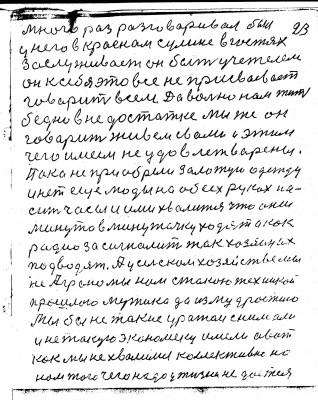 много раз разговаривал был 23
у него в красном сулине в гостях
заслуживает он быт учетелем
он к себя это все не присваевает
говарит всем. Даволно нам жить
бедно в не достатке мы же он
говарит живем вами с этим
чего имеем не удовлетварены.
Пака не приобрели залотую одежду
и нет еще моды на обеех руках на-
сит часы и ими хвалится что они
минуто в минуточку ходят а как
радио засигналит так хозяев их
подводят. А у селском хозяйстве мы
не Агрономы нам с такою техникой
прошлого мужика да из мудростию
Мы бы не такие уражаи снимали
и не такую экономеку имели а вот
как мы не хвалимся коллективно но
нам того чего надо у жизни не даётся